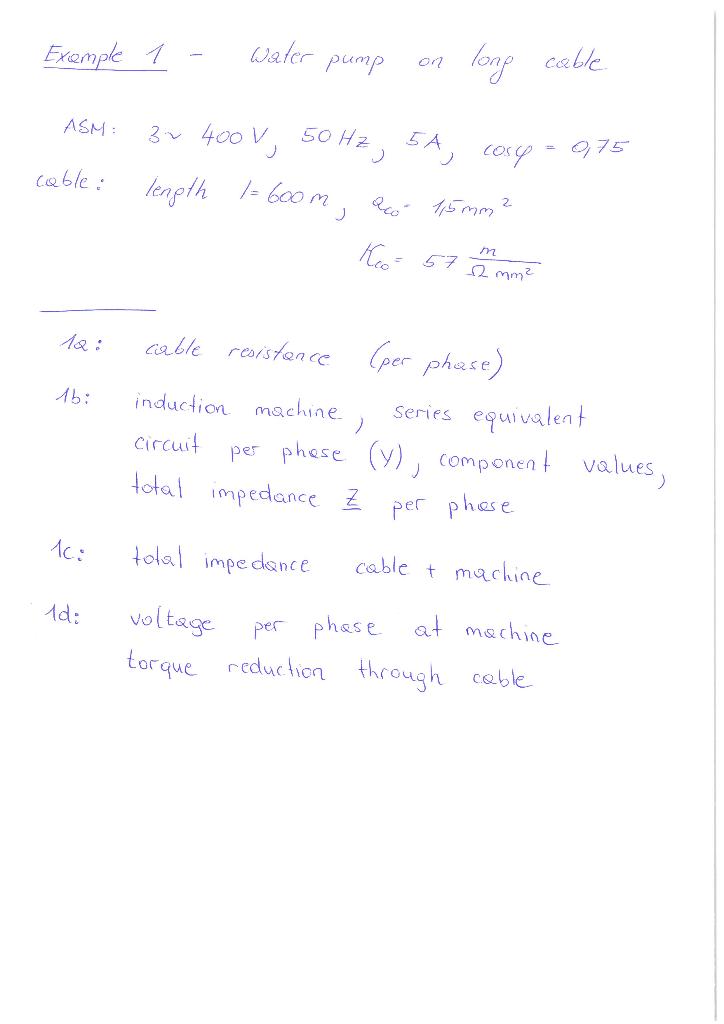 Example 1 - Water pump on long cable
ASM: 3~ 400 V, 50 Hz, 5A, cosφ = 0,75
cable: length l = 600 m, a_co = 1,5 mm²
K_co = 57 m / Ω mm²
1a: cable resistance (per phase)
1b: induction machine, series equivalent
circuit per phase (Y), component values,
total impedance Z per phase
1c: total impedance cable + machine
1d: voltage per phase at machine
torque reduction through cable